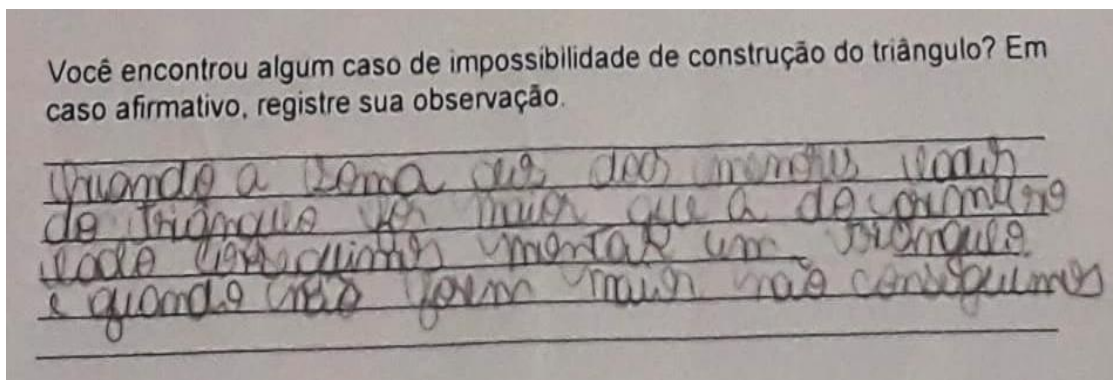 Você encontrou algum caso de impossibilidade de construção do triângulo? Em
caso afirmativo, registre sua observação.
Quando a soma dos dois menores lados
do triângulo for maior que a do primeiro
lado conseguimos montar um triângulo
e quando não forem maior não conseguimos